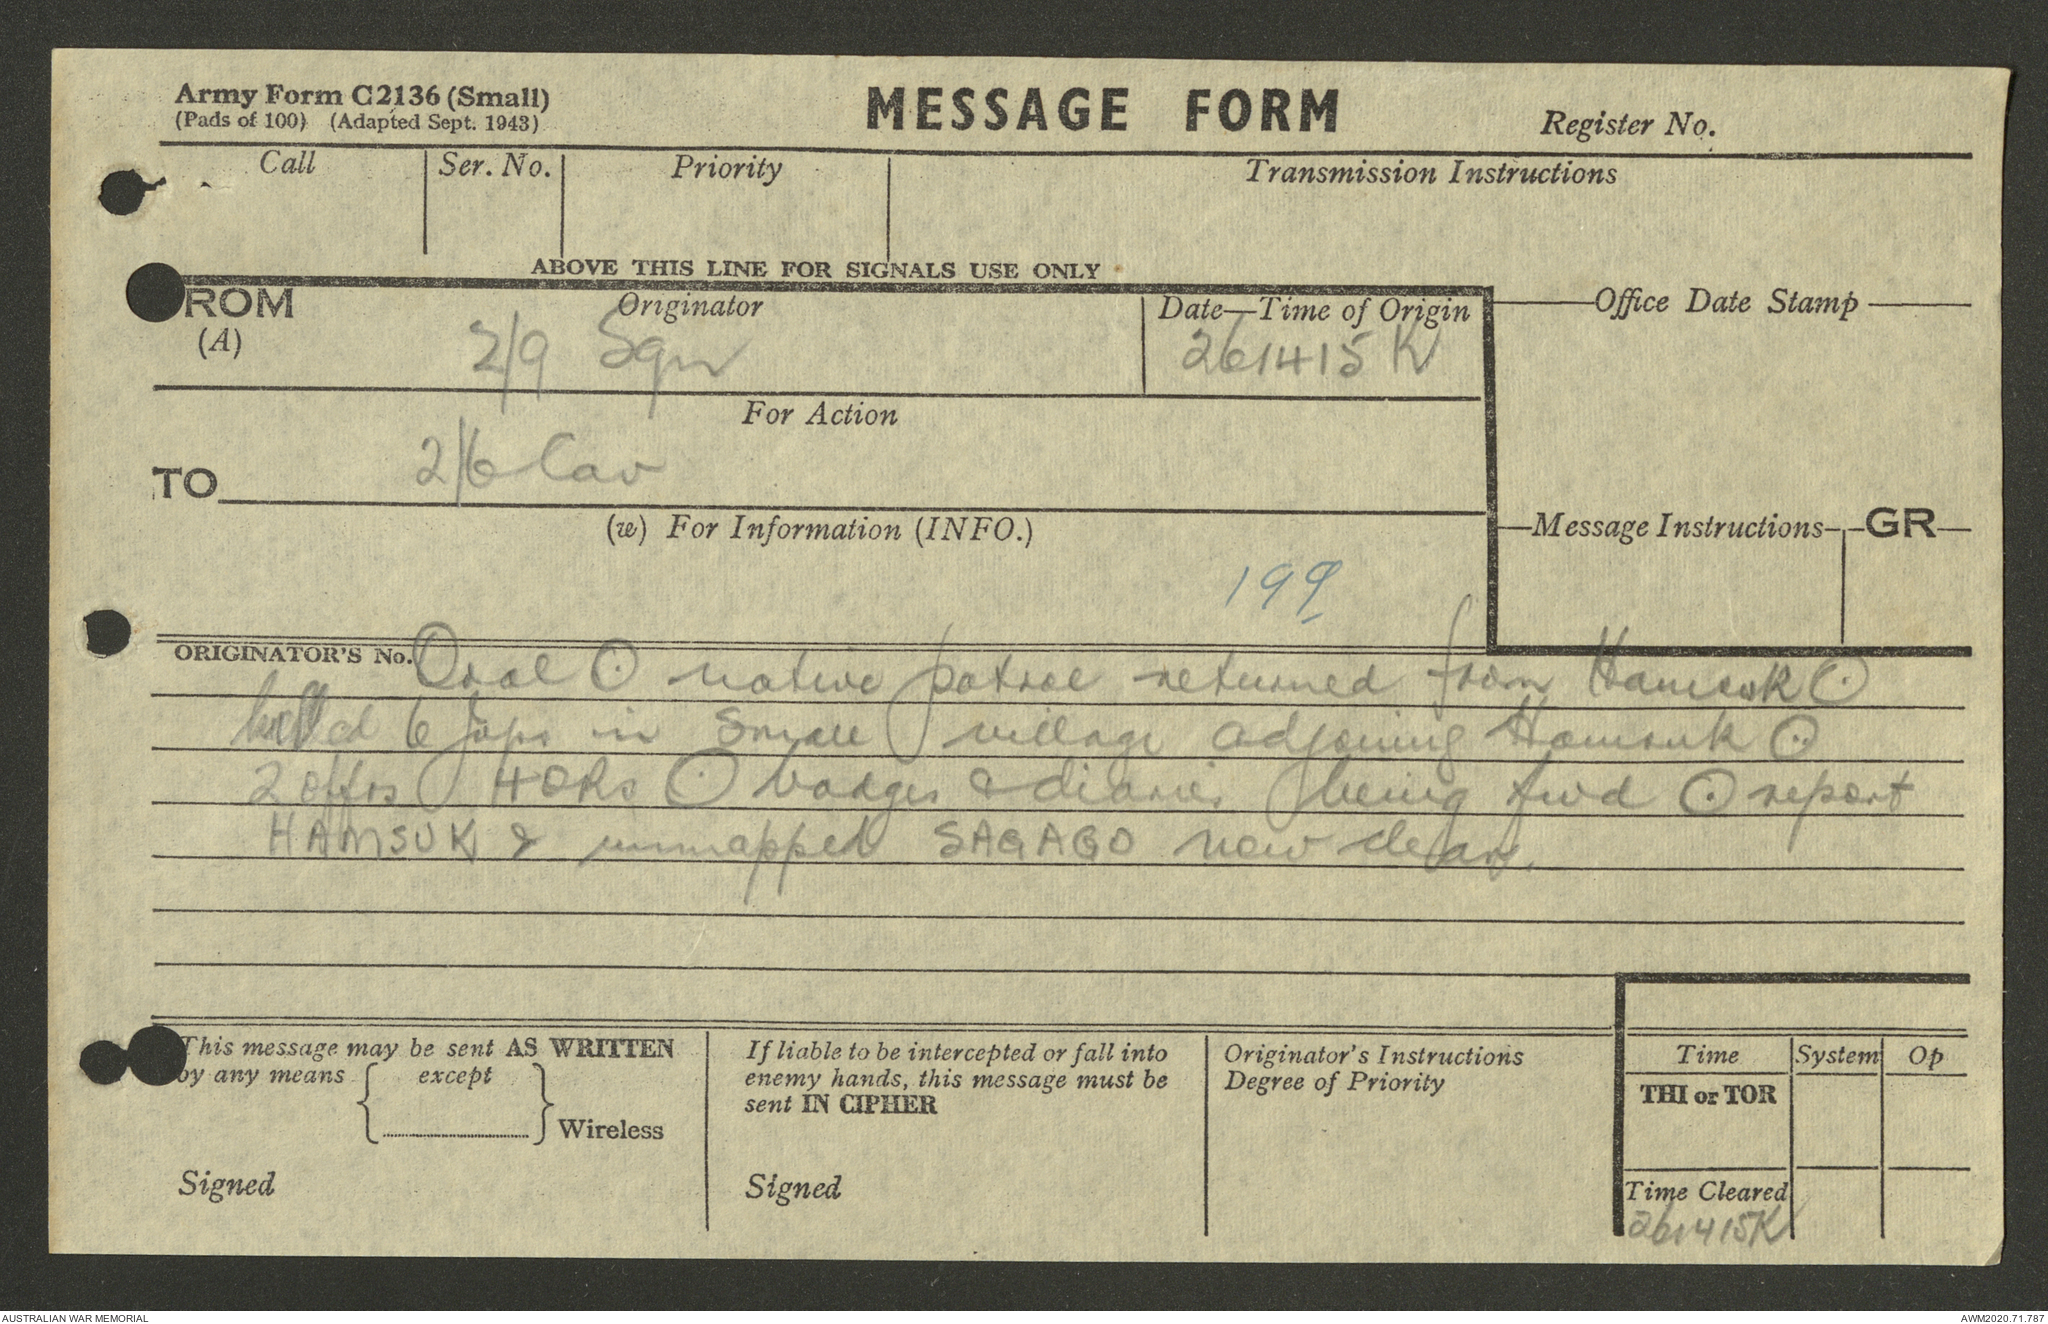 Army Form C2136 (Small)
(Pads of 100) (Adapted Sept. 1943)
MESSAGE FORM
Register No.
Call
Ser. No.
Priority
Transmission Instructions
ABOVE THIS LINE FOR SIGNALS USE ONLY
ROM
(A)
Originator
2/9 Sqn
Date—Time of Origin
261415 K
Office Date Stamp
For Action
TO
2/6 Cav
(w) For Information (INFO.)
Message Instructions
GR
199
ORIGINATOR'S No. Oral ⊙ native patrol returned from Hamsuk ⊙
killed 6 Japs in small village adjoining Hamsuk ⊙
2 offrs 4 ORs ⊙ badges & diaries being fwd ⊙ report
HAMSUK & unmapped SAGAGO now clear.
This message may be sent AS WRITTEN
by any means except
Wireless
Signed
If liable to be intercepted or fall into
enemy hands, this message must be
sent IN CIPHER
Signed
Originator's Instructions
Degree of Priority
Time
System
Op
THI or TOR
Time Cleared
261415K
AUSTRALIAN WAR MEMORIAL
AWM2020.71.787